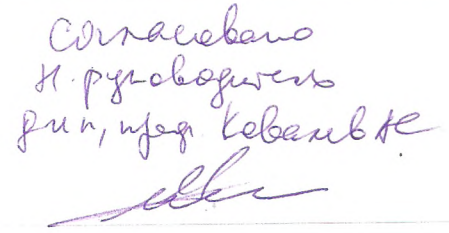 Согласовано
н. руководитель
дип, проф Ковалев АС